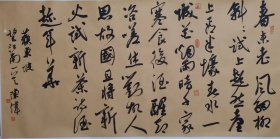 春未老風細柳
斜斜試上超然臺
上看半壕春水一
城花煙雨暗千家
寒食後酒醒却
咨嗟休對故人
思故國且將新
火試新茶詩酒
趁年華
蘇東坡
望江南